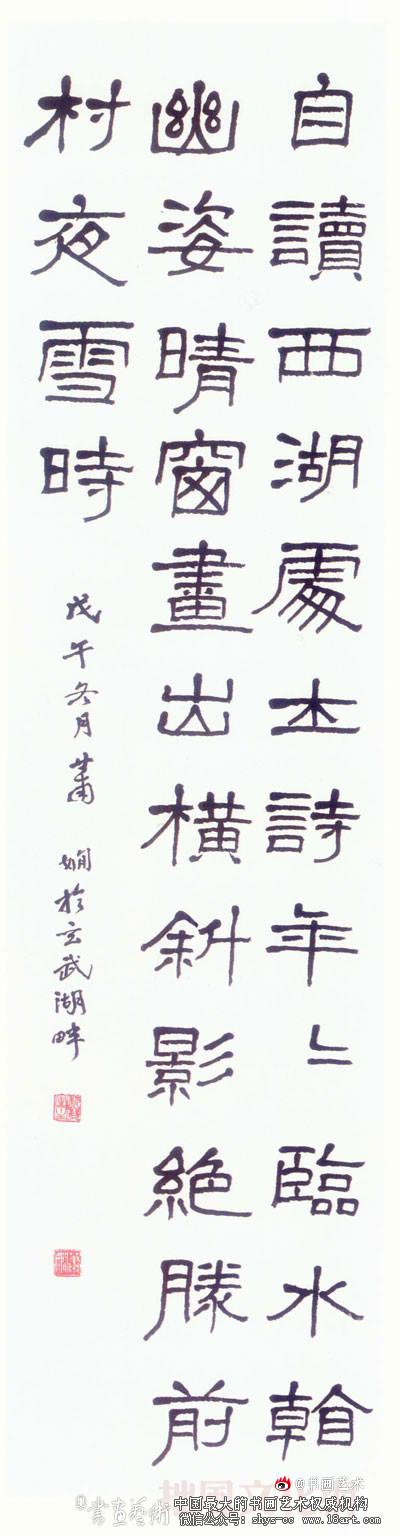 自讀西湖處士詩年〻臨水看
幽姿晴窗畫出橫斜影絕勝前
村夜雪時
戊午冬月蕭嫻於玄武湖畔
@书画艺术
中国最大的书画艺术权威机构
微信公众号：shys-cc www.18art.com